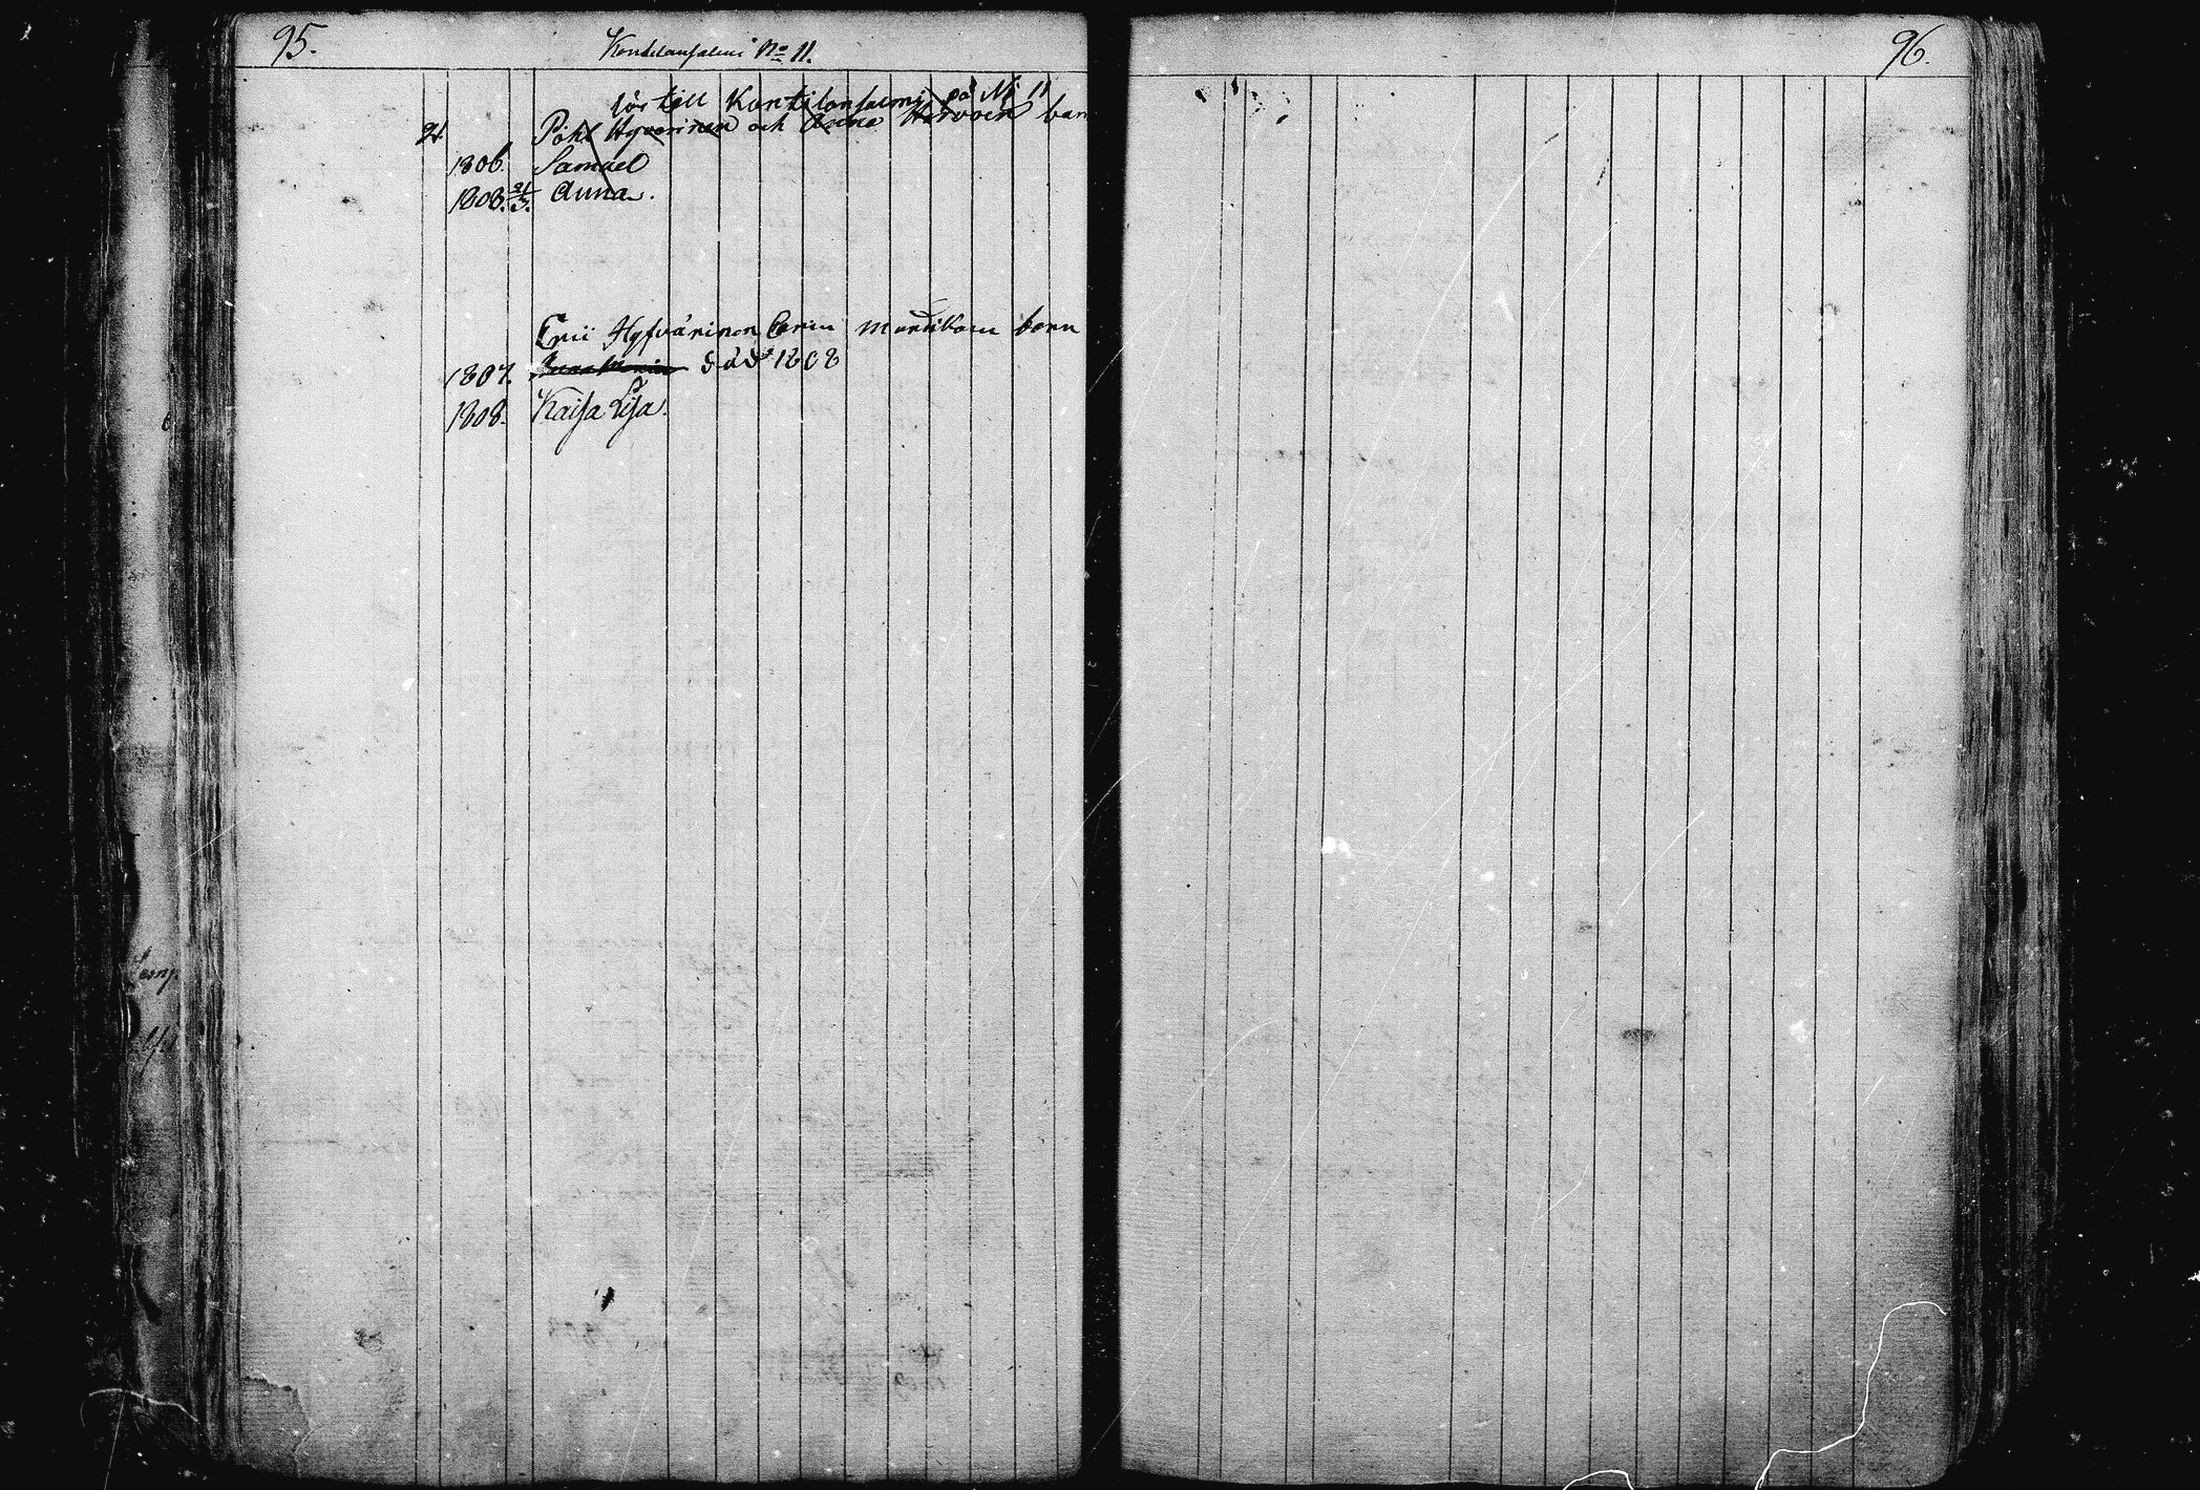 95.
Kontilansalmi No 11.
96.
för till Kontilansalmi på No 11
21. Påhl Hyvärinen och Anna Harvoin barn
1806. Samuel
1808. 21/3. Anna.
Eric Hyfvärinen Carin barn
1807. död 1808
1808. Kaisa Lisa.